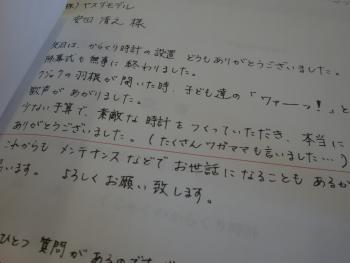 (株)ヤスダモデル
安田 清之 様
先日は、からくり時計の設置 どうもありがとうございました。
除幕式も無事に終わりました。
クジャクの羽根が開いた時、子ども達の「ワァーっ！」と
歓声があがりました。
少ない予算で、素敵な時計をつくっていただき、本当に
ありがとうございました。(たくさんワガママも言いました…)
これからも メンテナンスなどでお世話になることも あるか
います。 よろしくお願い致します。
ひとつ 質問が あるのです